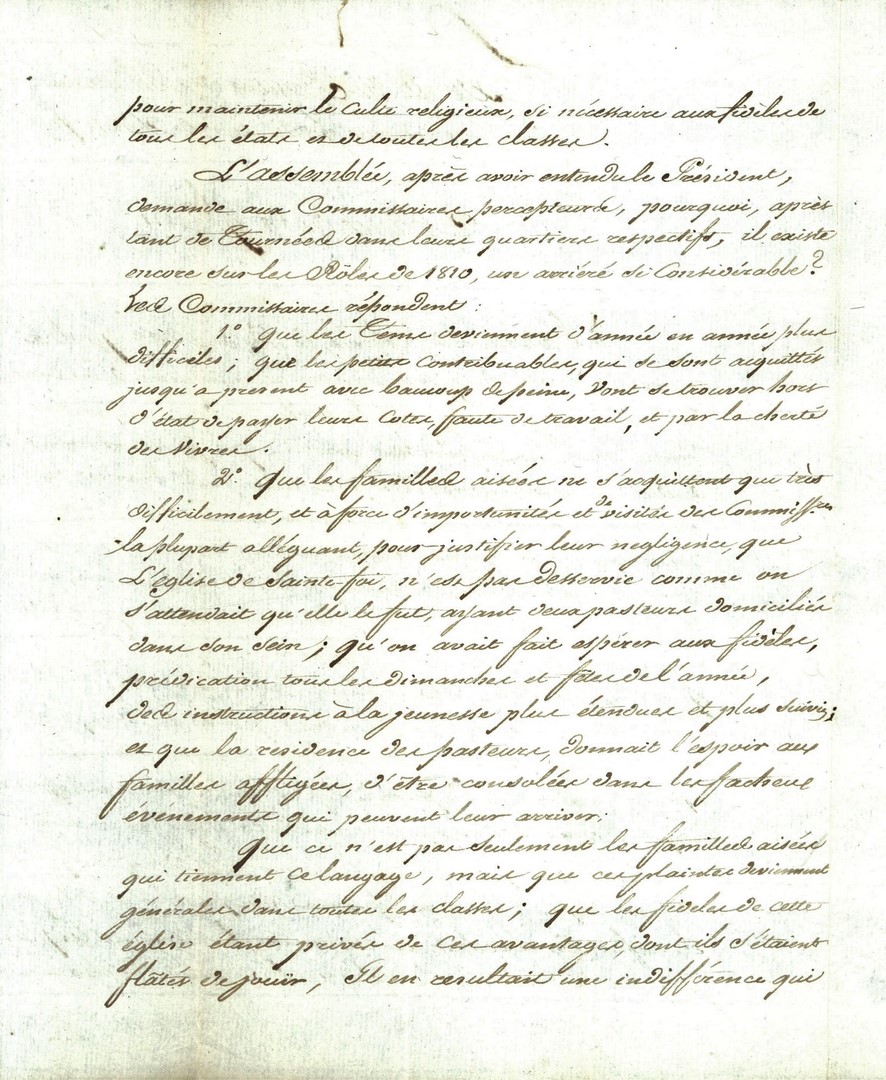 pour maintenir le culte religieux, si nécessaire aux fidèles de
tous les états et de toutes les classes.
L'assemblée, après avoir entendu le Président,
demande aux Commissaires percepteurs, pourquoi, après
tant de Tournées dans leurs quartiers respectifs, il existe
encore sur les Rôles de 1810, un arriéré si considérable?
Les Commissaires répondent :
1° que les Tems deviennent d'année en année plus
difficiles ; que les petits contribuables, qui se sont acquittés
jusqu'a present avec beaucoup de peine, vont se trouver hors
d'état de payer leurs cotes, faute de travail, et par la cherté
des vivres.
2° Que les familles aisées ne s'acquittent que très
difficilement, et à force d'importunités et de visites des Commissres
la plupart alléguant, pour justifier leur negligence, que
L'église de Sainte-foi, n'est pas desservie comme on
s'attendait qu'elle le fut, ayant deux pasteurs domiciliés
dans son sein ; qu'on avait fait espérer aux fidèles,
prédication tous les dimanches et fêtes de l'année,
des instructions à la jeunesse plus étendues et plus suivies ;
et que la residence des pasteurs, donnait l'espoir aux
familles affligées, d'être consolées dans les facheux
événements qui peuvent leur arriver.
Que ce n'est pas seulement les familles aisées
qui tiennent ce langage, mais que ces plaintes deviennent
générales dans toutes les classes ; que les fideles de cette
église étant privés de ces avantages, dont ils s'étaient
flâtés de jouïr, Il en resultait une indifférence qui